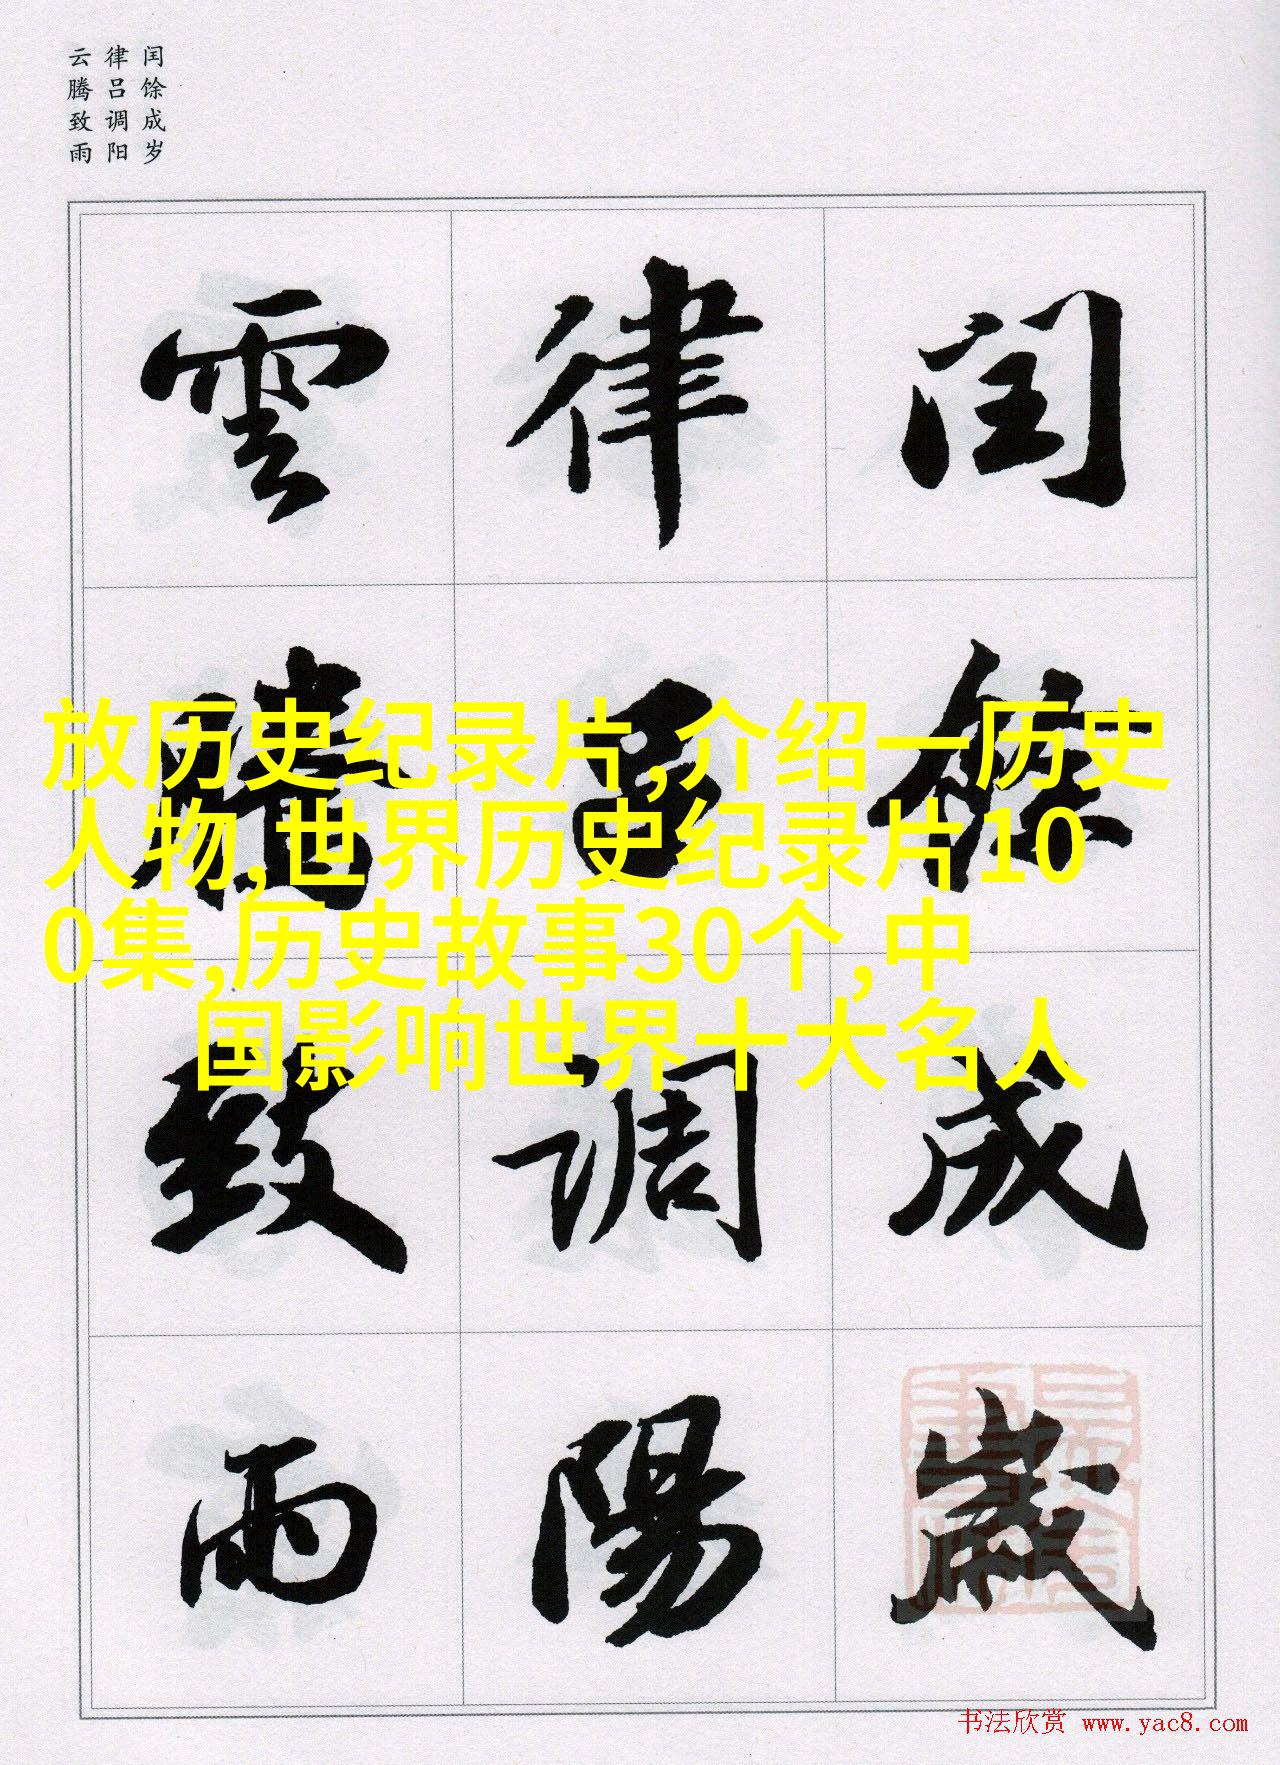 闰馀成岁
律吕调阳
云腾致雨
闰馀成歲
律吕调陽
雲騰致雨
放历史纪录片,介绍一历史
人物,世界历史纪录片10
0集,历史故事30个,中
国影响世界十大名人
书法欣赏 www.yac8.com